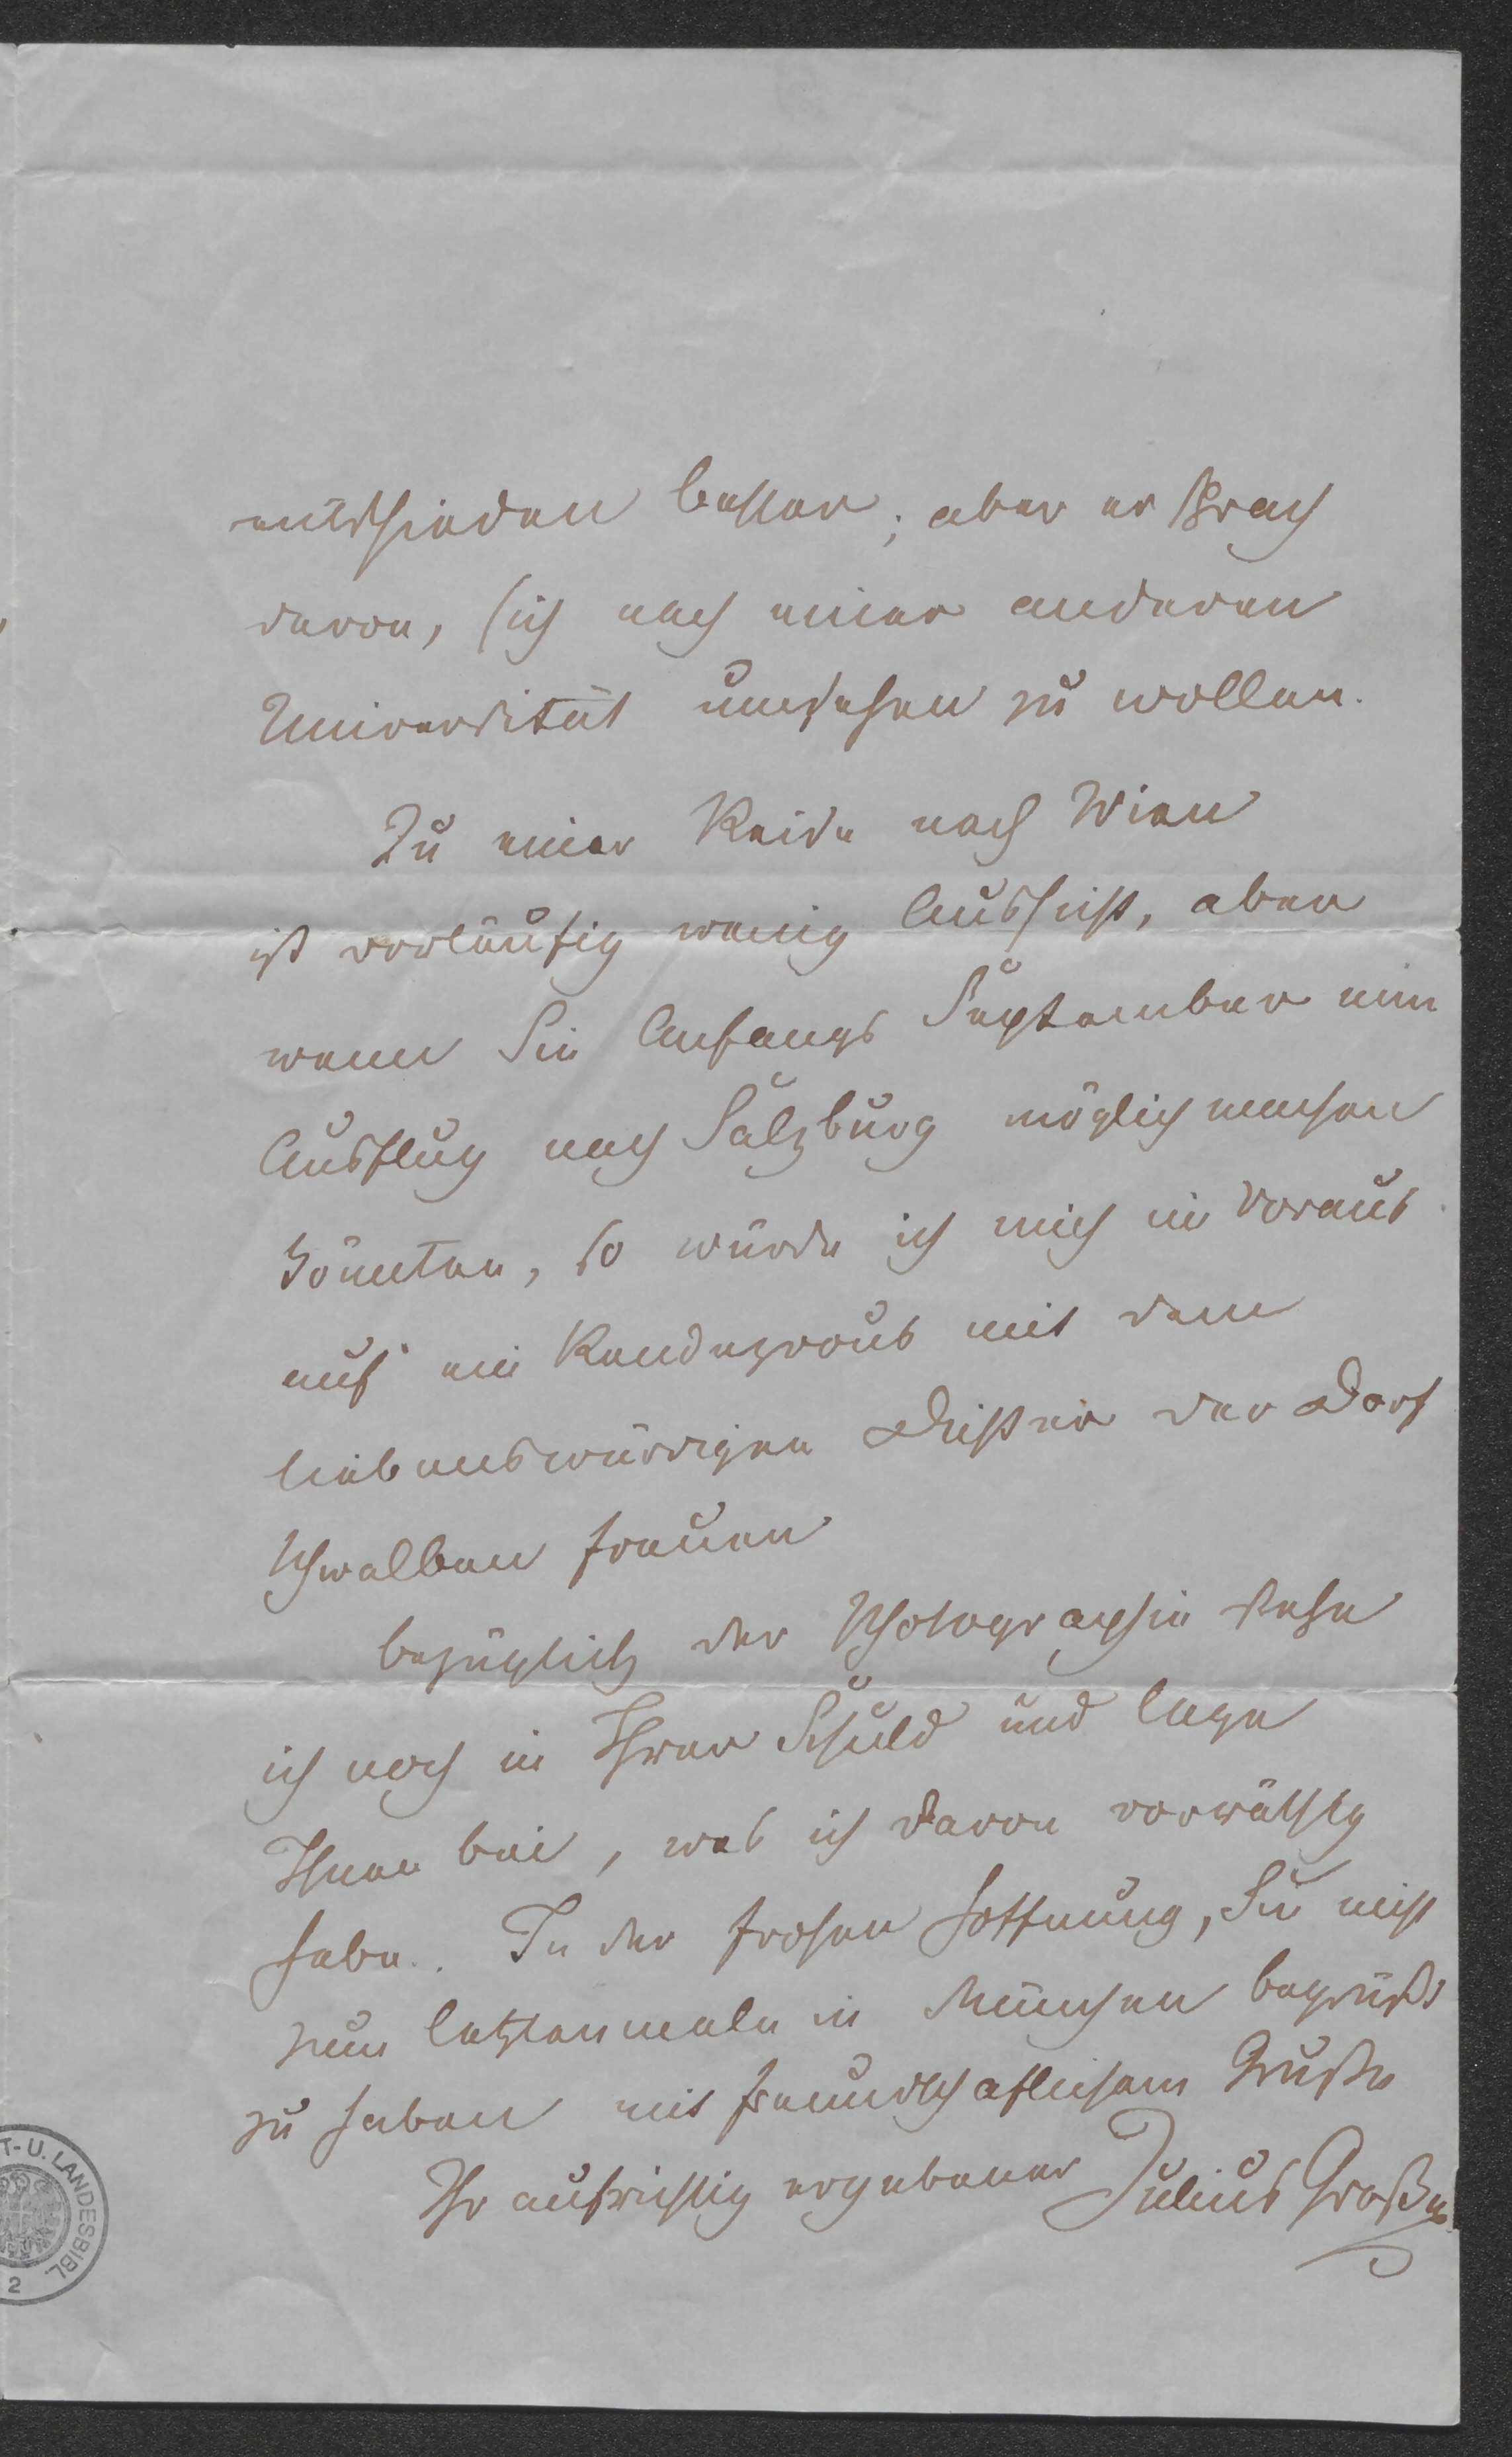 entschieden besser; aber er sprach
davon, sich nach einer anderen
Universität umsehen zu wollen.
Zu einer Reise nach Wien
ist vorläufig wenig Aussicht, aber
wenn Sie Anfangs September einen
Ausflug nach Salzburg möglich machen
könnten, so würde ich mich im Voraus
auf ein Rendezvous mit dem
liebenswürdigen Dichter der Dorf
schwalben freuen
bezüglich der Photographie stehe
ich noch in Ihrer Schuld und lege
Ihnen bei, was ich davon vorräthig
habe. In der frohen Hoffnung, Sie nicht
zum letztenmale in München begrüßt
zu haben mit freundschaftlichem Gruße
Ihr aufrichtig ergebener Julius Grosse
T- U. LANDESBIBL.
2